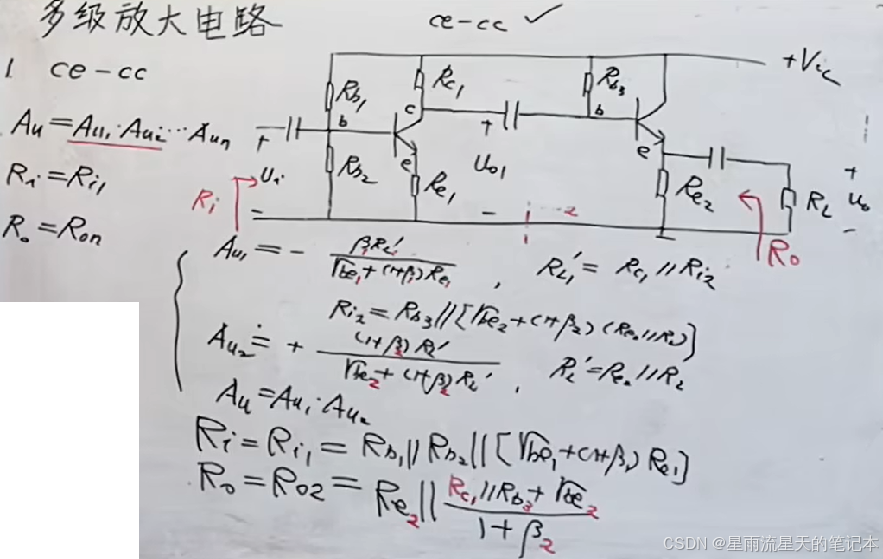 多级放大电路
ce-cc ✓
1 ce-cc
Au = Au₁·Au₂…Auₙ
Ri = Ri₁
Ro = Ron
+Vcc
Rb₁
Rc₁
Rb₃
c
b
b
e
e
+
Rb₂
Ui
Re₁
+
Uo₁
-
Re₂
RL
+
uo
-
Ri
1
2
Ro
Au₁ = - β₁RL₁' / (rbe₁+(1+β₁)Re₁) , RL₁' = Rc₁ // Ri₂
Ri₂ = Rb₃ // [rbe₂+(1+β₂)(Re₂//RL)]
Au₂ = + (1+β₂)RL' / (rbe₂+(1+β₂)RL') , RL' = Re₂ // RL
Au = Au₁·Au₂
Ri = Ri₁ = Rb₁ // Rb₂ // [rbe₁+(1+β₁)Re₁]
Ro = Ro2 = Re₂ // (Rc₁//Rb₃+rbe₂) / (1+β₂)
CSDN @星雨流星天的笔记本